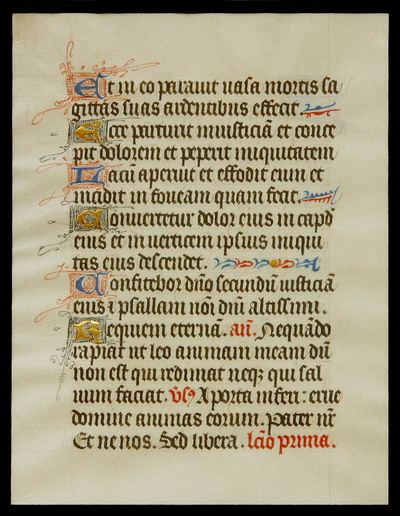 Et in eo parauit uasa mortis sa
gittas suas ardentibus effecit.
Ecce parturit iniusticiā et conce
pit dolorem et peperit iniquitatem
Lacū aperuit et effodit eum et
incidit in foueam quam fecit.
Conuertetur dolor eius in capd
eius et in uerticem ipsius iniqui
tas eius descendet.
Confitebor dño secundū iusticiā
eius ⁊ psallam noī dñi altissimi.
Requiem eternā. añ. Nequādo
rapiat ut leo animam meam dū
non est qui redimat neqꝫ qui sal
uum faciat. Vsꝰ A porta inferi: erue
domine animas eorum. Pater nr̄
Et ne nos. Sed libera. lcīo prima.